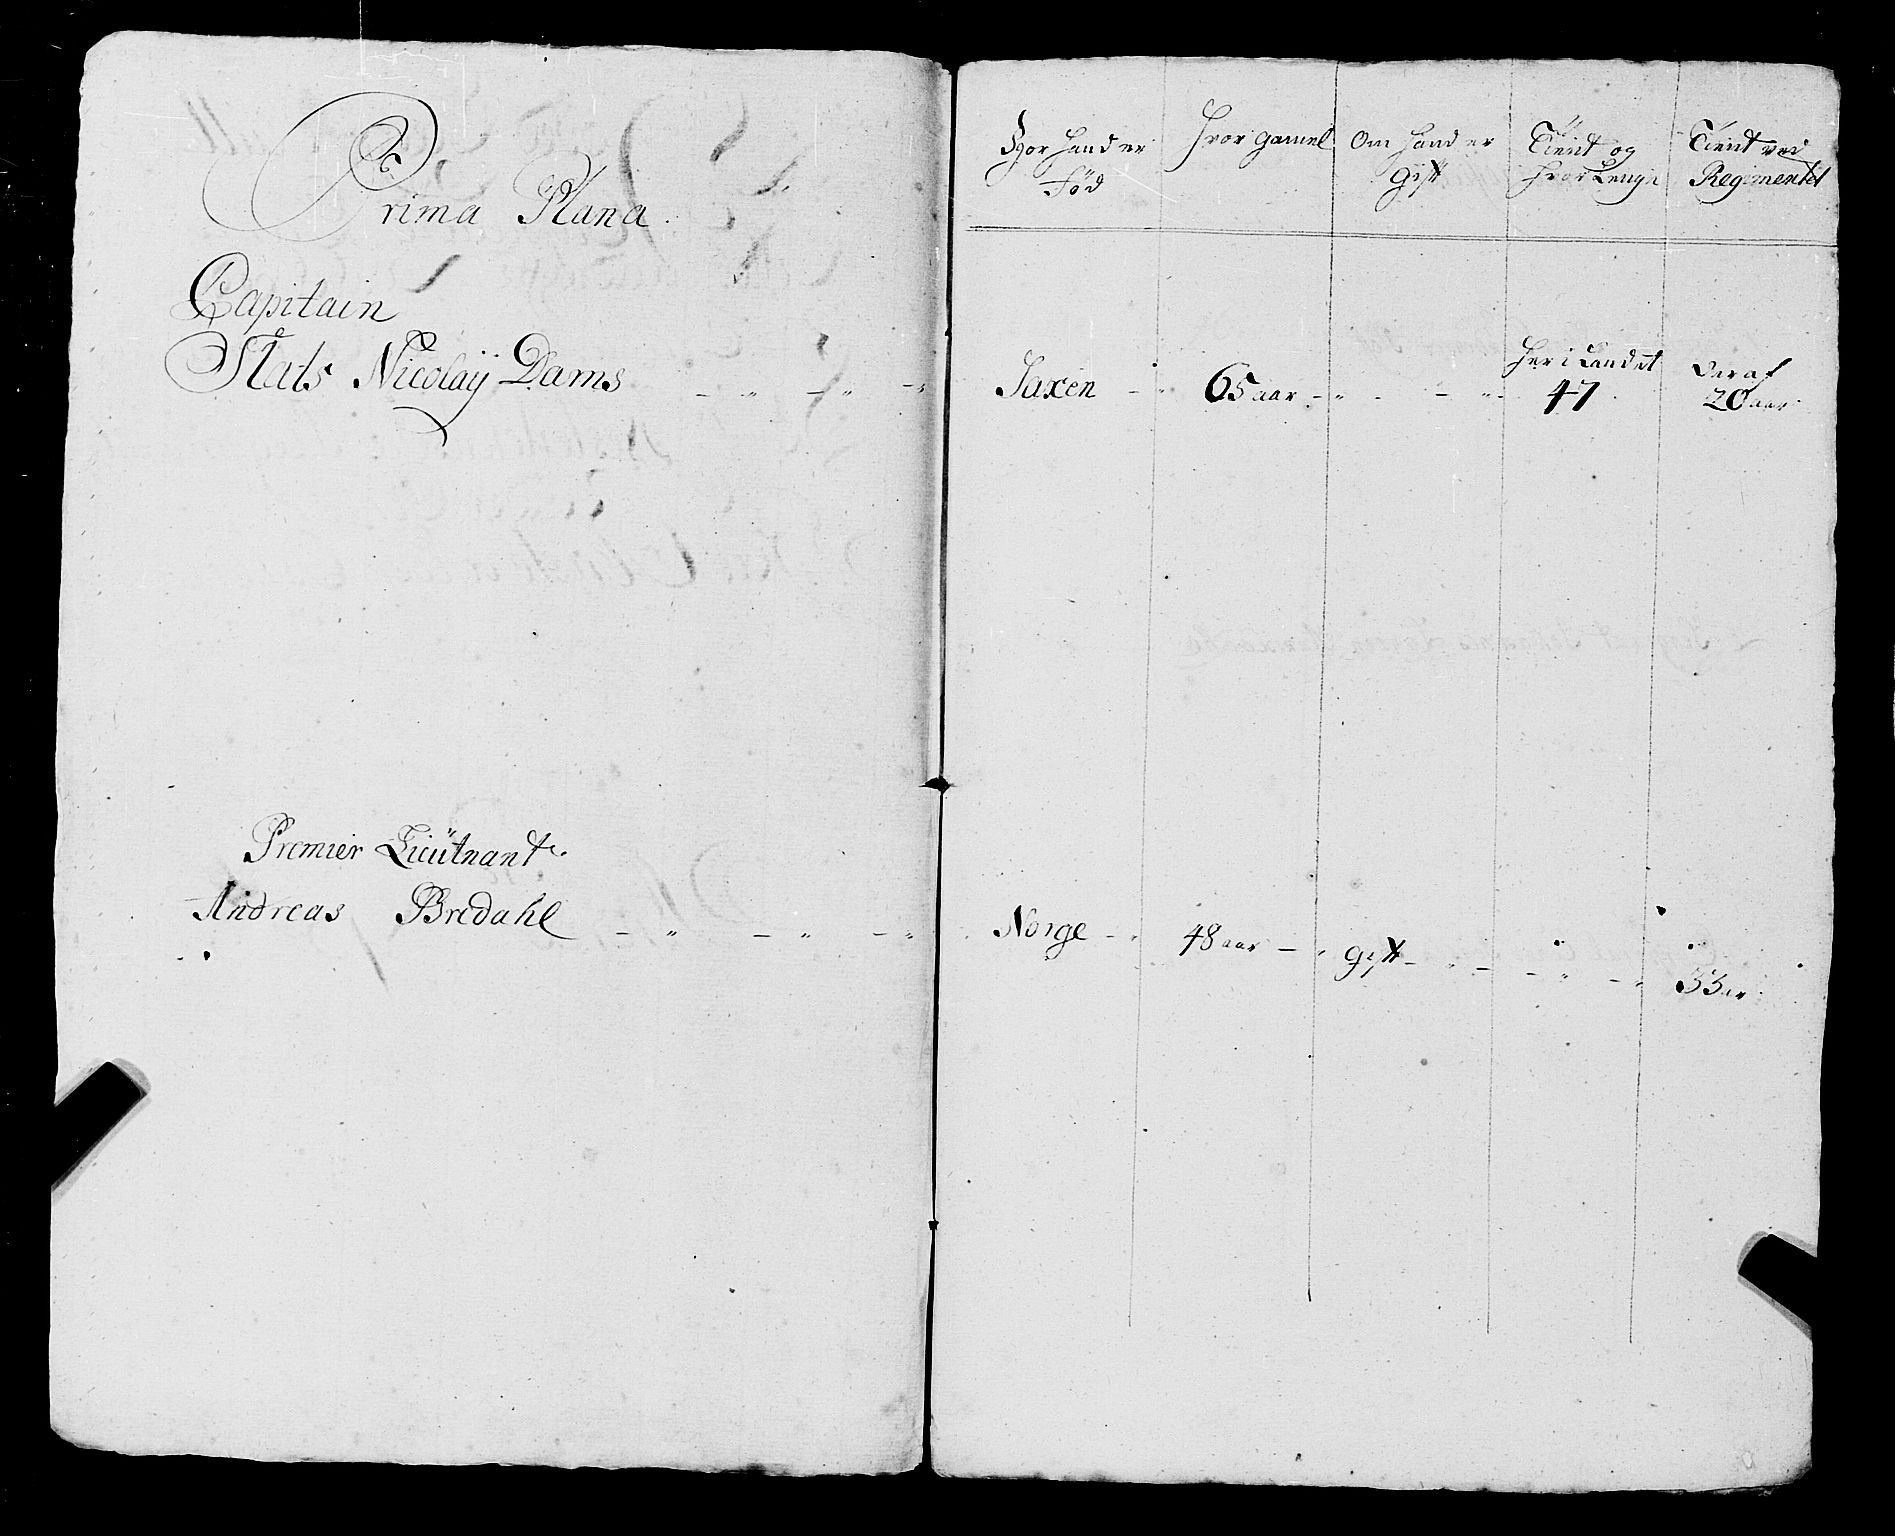 Prima Plana.
Capitain
Stats Nicolaÿ Dams
Premier Lieütnant.
Andreas Bredahl
Hvor hand er
Fød
hvor gamel
Om hand er
gift
Tient og
hvor Lenge
Tient ved
Regimentet
Saxen
65 aar
her i Landet
47
Deraf
20 aar
Norge
48 aar
gift
33 ar